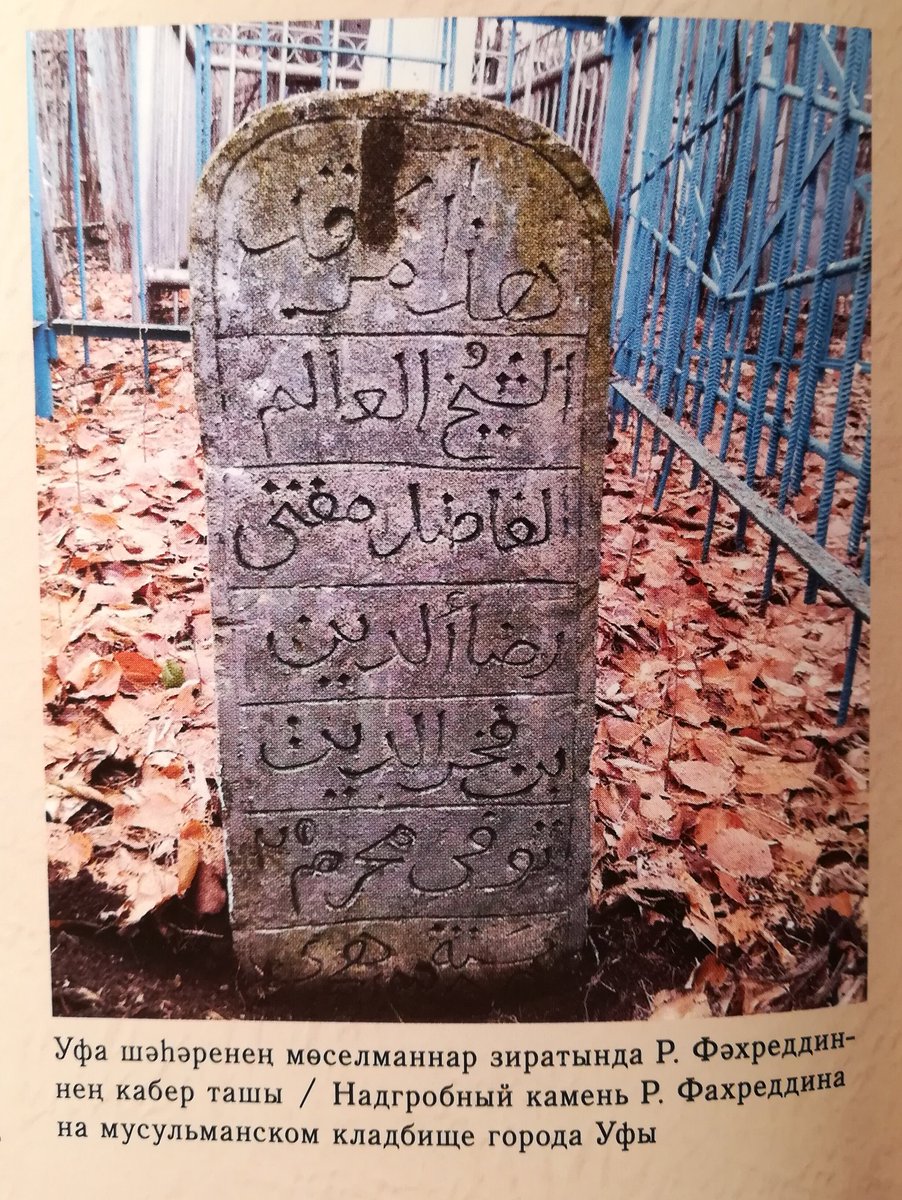 هذا مرقد
الشيخ العالم
الفاضل مفتى
رضاألدين
ابن فخرالدين
توفى محرم
سنة هجرى
Уфа шәһәренең мөселманнар зиратында Р. Фәхреддин-
нең кабер ташы / Надгробный камень Р. Фахреддина
на мусульманском кладбище города Уфы